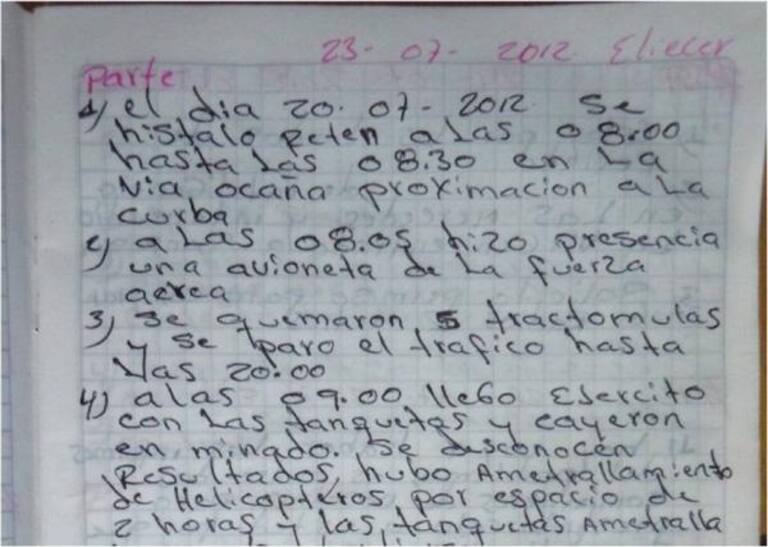 23- 07- 2012 Eliecer
Parte
1) el dia 20. 07- 2012 Se
histalo Reten a las 08:00
hasta Las 08.30 en La
Via ocaña proximacion a La
curba
2) a Las 08.05 hizo presencia
una avioneta de La fuerza
aerea
3) Se quemaron 5 tractomulas
y Se paro el trafico hasta
las 20.00
4) a las 09.00 llego Esercito
con Las tanquetas y cayeron
en minado. Se desconocen
Resultados, hubo Ametrallamiento
de Helicopteros por espacio de
2 horas y las tanquetas Ametralla